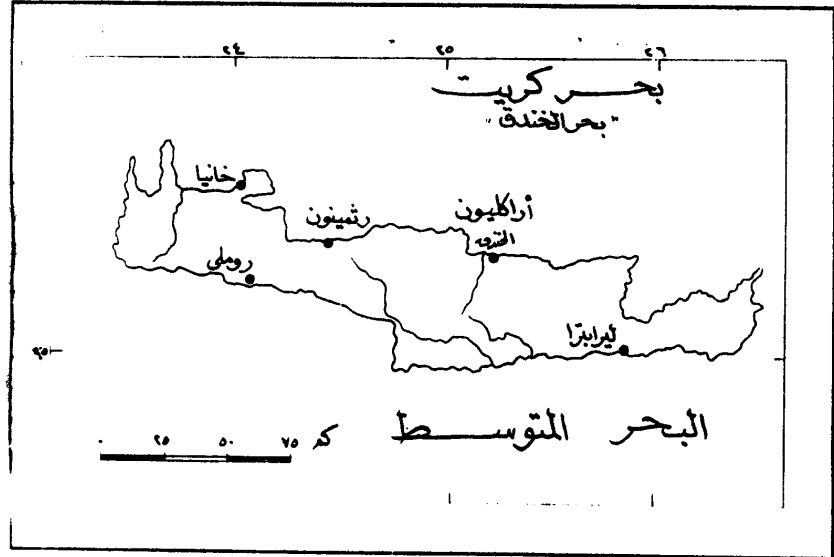 ٢٤ ٢٥ ٢٦
بحر كريت
"بحر الخندق"
خانيا
رثمينون
أراكليون
الخندق
روملي
ليرابترا
البحر المتوسط
٠ ٢٥ ٥٠ ٧٥ كم